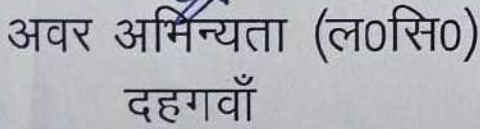 अवर अभिन्यता (ल0सि0)
दहगवाँ